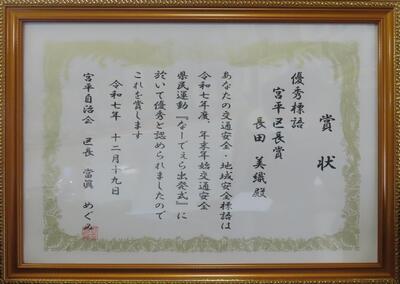 賞状
優秀標語
宮平区長賞
長田 美織 殿
あなたの交通安全・地域安全標語は
令和七年度、年末年始交通安全
県民運動『なーでぇら出発式』に
於いて優秀と認められましたので
これを賞します
令和七年 十二月十九日
宮平自治会 区長 當眞 めぐみ